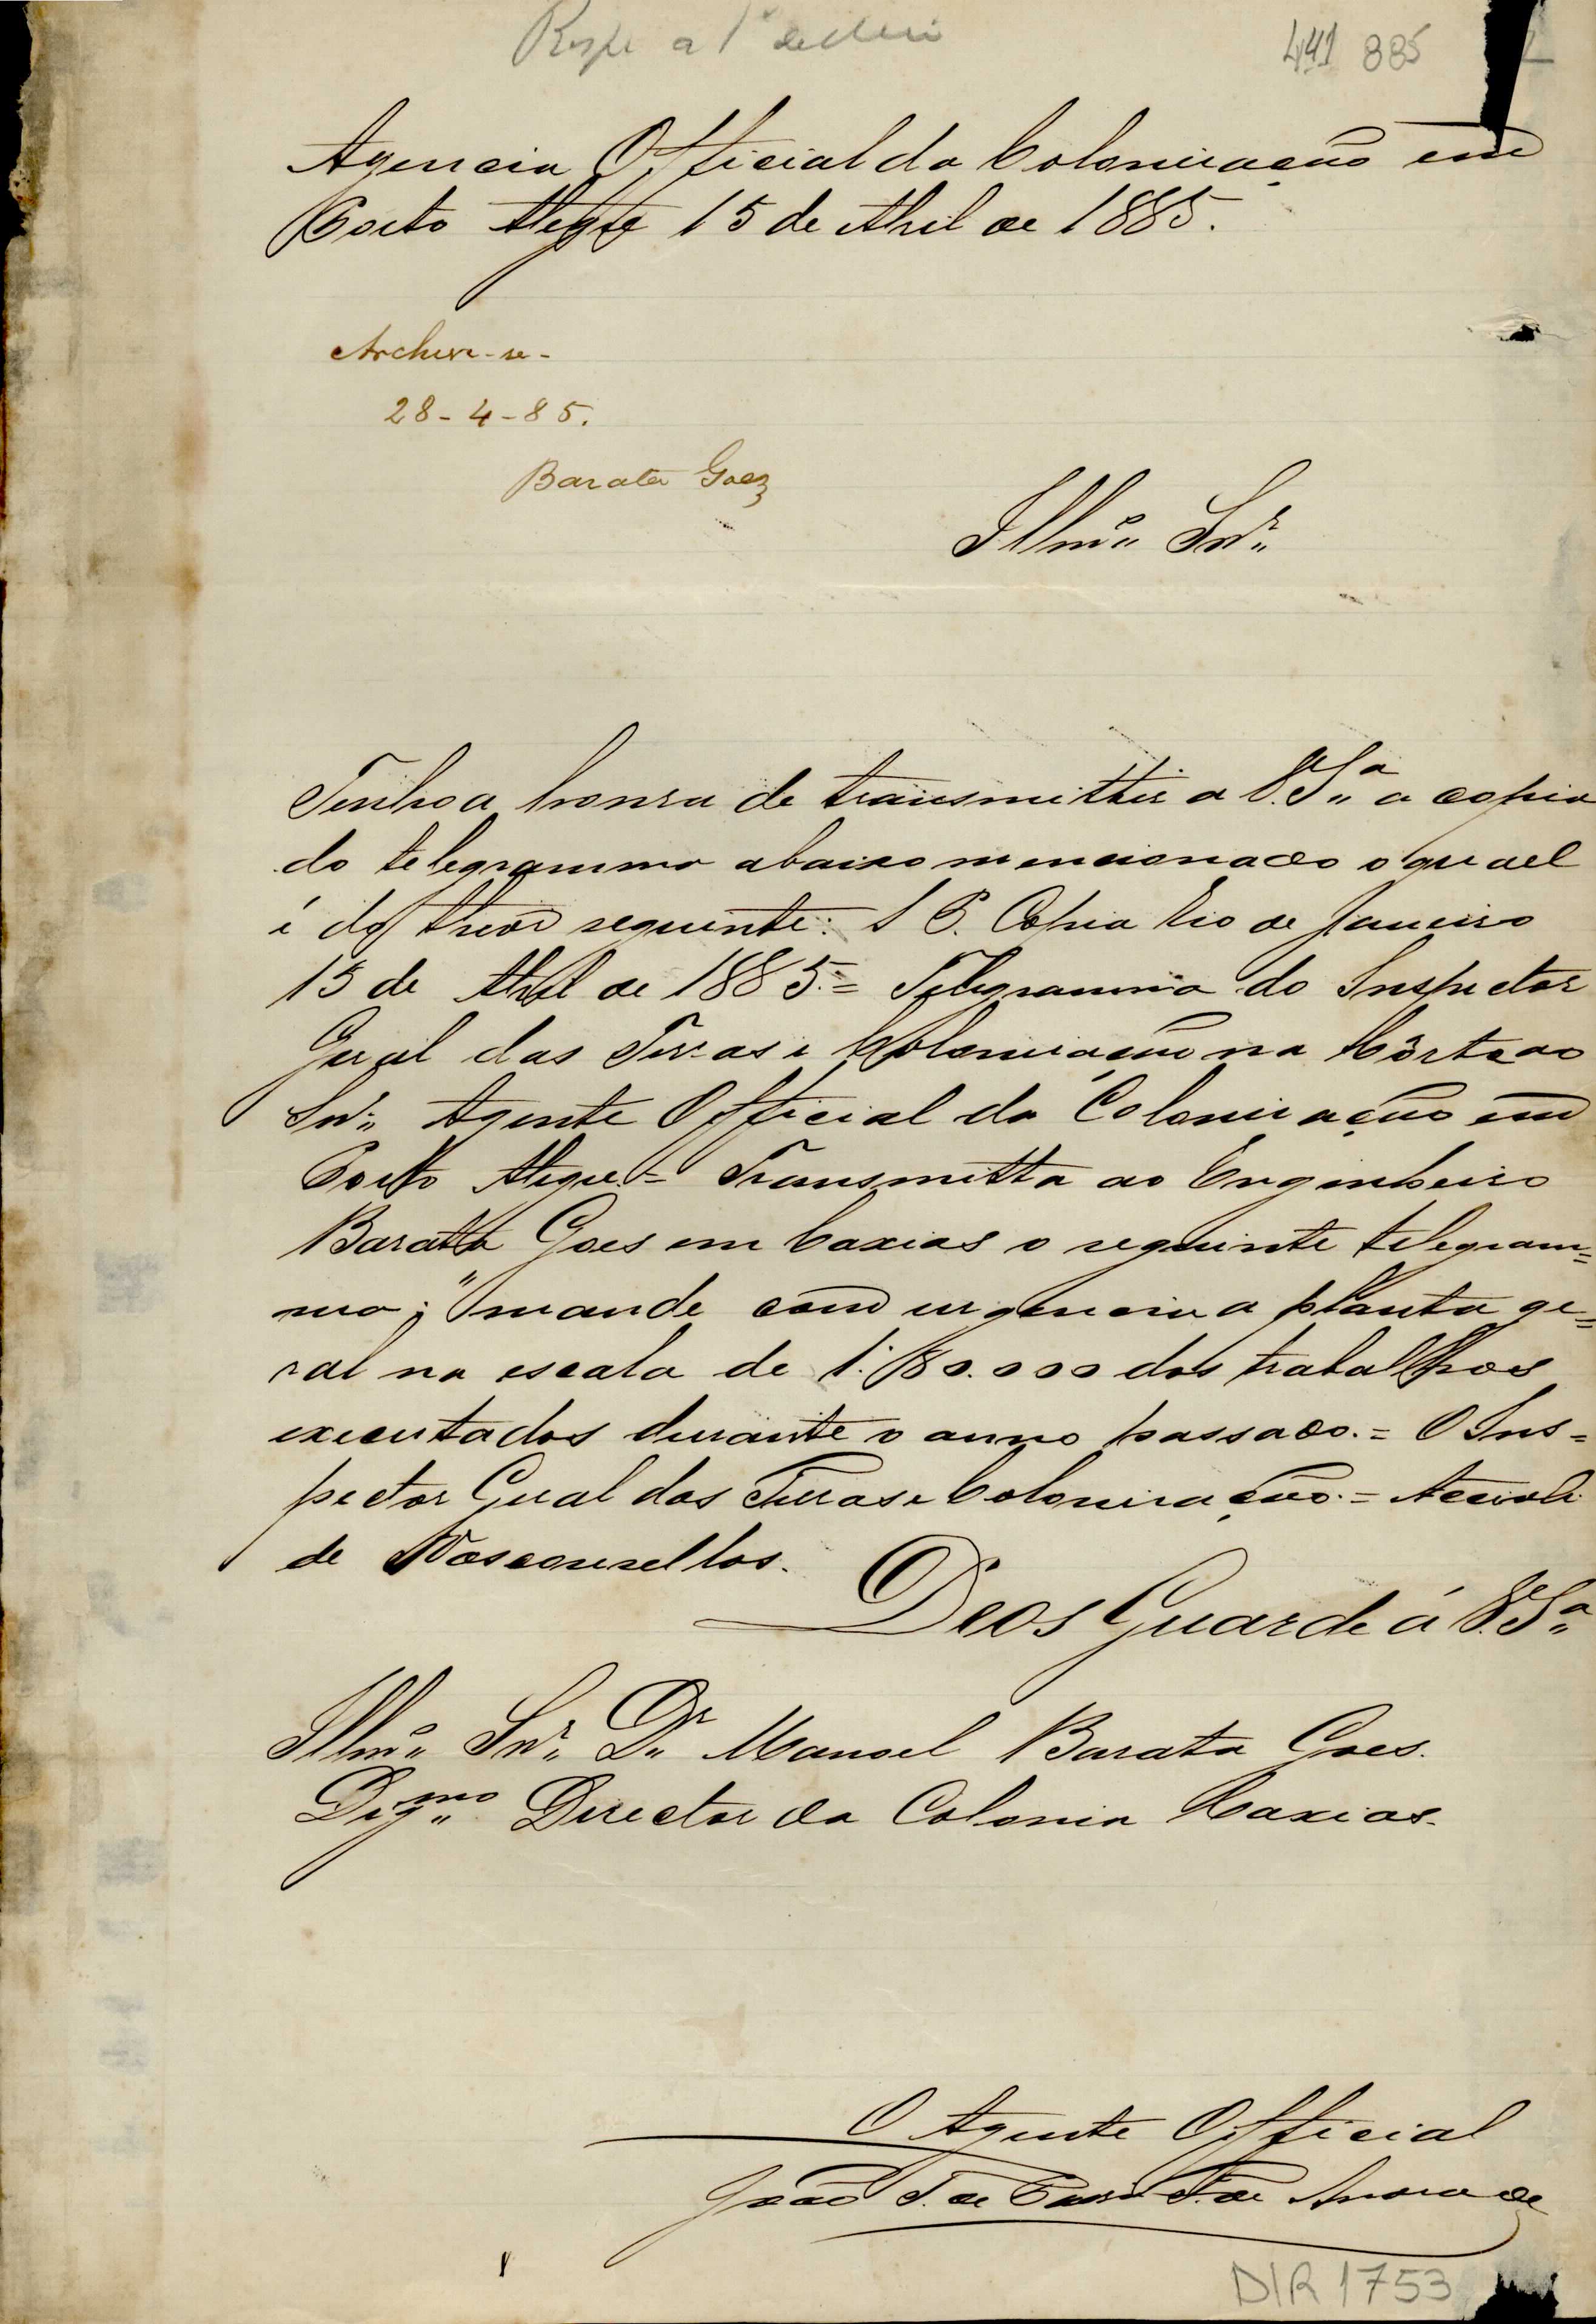 441 885
Agencia Official da Colonisação em
Porto Alegre 15 de Abril de 1885.
Archive-se-
28-4-85.
Barata Goes
Illmº Snr.
Tenho a honra de transmittir a V. Sª a copia
do telegramma abaixo mencionado o qual
é do theor seguinte: S P. Copia Rio de Janeiro
15 de Abril de 1885.= Telegramma do Inspector
Geral das Terras e Colonisação na Côrte ao
Snr. Agente Official da Colonisação em
Porto Alegre.= Transmitta ao Engenheiro
Barata Goes em Caxias o seguinte telegram=
ma; "mande com urgencia a planta ge=
ral na escala de 1:80.000 dos trabalhos
executados durante o anno passado.= O Ins=
pector Geral das Terras e Colonisação.= Accioli
de Vasconsellos.
Deos Guarde á V. Sª
Illmº Snr. Dr Manoel Barata Goes.
Digmo Director da Colonia Caxias.
O Agente Official
João T. de F. de Andrade
DIR 1753